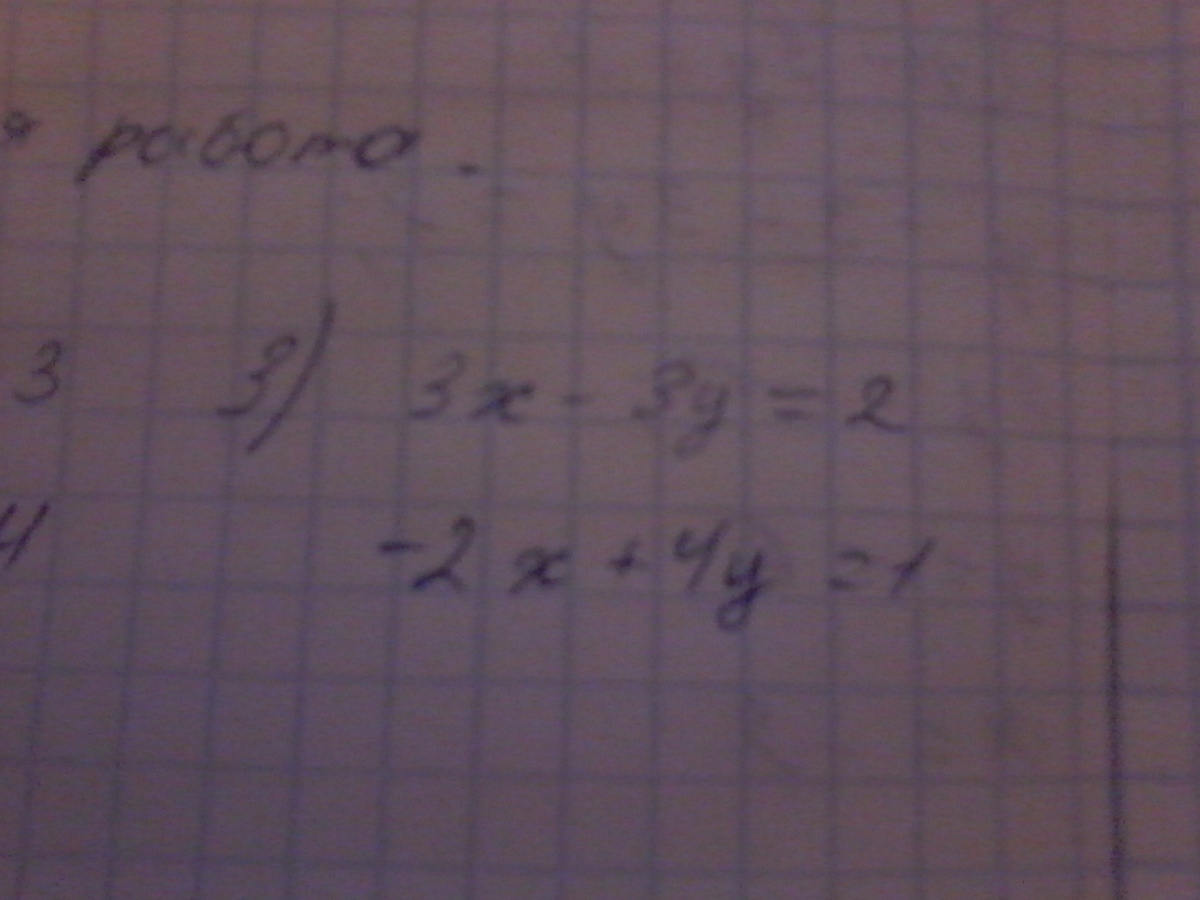 работа.
3 3) 3x - 3y = 2
4 -2x + 4y = 1